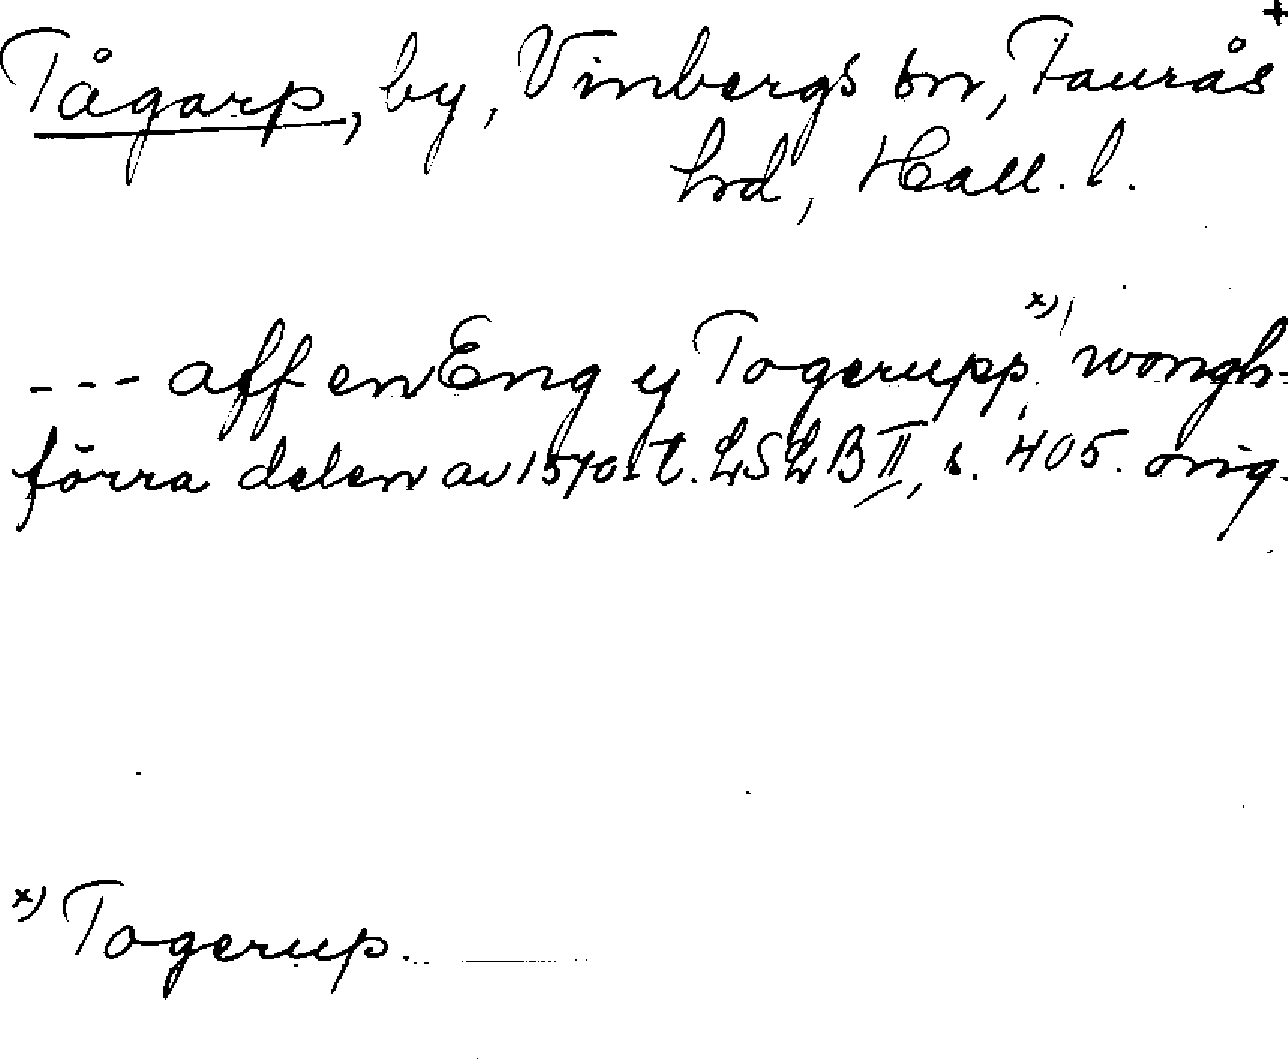 +
Tågarp, by, Vinbergs sn, Faurås
hrd, Hall. l.
--- aff en Eng y Togerupp x) wongh-
förra delen av 1570-t. LSLB II, s. 405. orig.
x) Togerup.